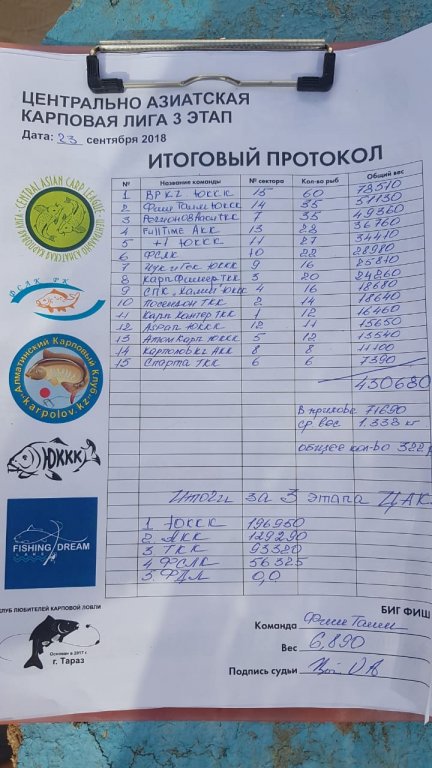 ЦЕНТРАЛЬНО АЗИАТСКАЯ
КАРПОВАЯ ЛИГА 3 ЭТАП
Дата: 23 сентября 2018
ИТОГОВЫЙ ПРОТОКОЛ
№ Название команды № сектора Кол-во рыб Общий вес
1 BP KZ ЮККК 15 60 73510
2 Фиш Тайм ЮККК 14 35 51130
3 ТКК 7 35 49360
4 FullTime АКК 13 28 36760
5 +1 ЮККК 11 27 34410
6 ФСЛК 10 22 28980
7 Чук и Гек ЮККК 9 16 25810
8 Карп Фишер ТКК 3 20 24260
9 СПК ЮККК 4 16 18680
10 Посейдон ТКК 2 14 18640
11 Карп Хантер ТКК 1 12 16460
12 ЮККК 12 11 15650
13 Атом Карп ЮККК 5 12 13540
14 АКК 8 8 11100
15 Спарта ТКК 6 6 7390
430680
В прилове 71690
ср вес 1.338 кг
общее кол-во 322
Итоги за 3 этапа ЦАК
1 ЮККК 196950
2. АКК 129290
3 ТКК 93320
4 ФСЛК 56325
5 ФДЛ 0,0
CENTRAL ASIAN CARP LEAGUE
ФСЛК РК
Алматинский Карповый Клуб
"karpolov.kz"
ЮККК
FISHING DREAM
LAKE
КЛУБ ЛЮБИТЕЛЕЙ КАРПОВОЙ ЛОВЛИ
Основан в 2017 г.
г. Тараз
БИГ ФИШ
Команда Фиш Тайм
Вес 6,890
Подпись судьи